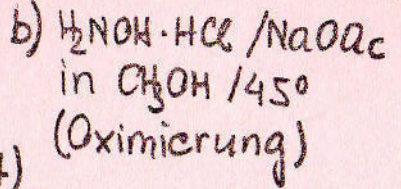 b) H₂NOH·HCl /NaOAc
in CH₃OH /45°
(Oximierung)
)